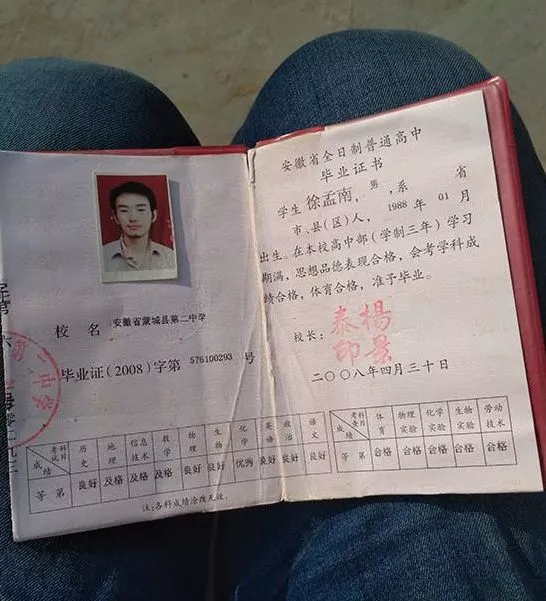 校 名 安徽省蒙城县第二中学
毕业证(2008)字第 576100293 号
科目 考试 成绩 历史 地理 信息技术 数学 物理 生物 化学 英语 政治 语文
等 第 良好 及格 及格 及格 良好 良好 优秀 良好 良好 良好
注:各科成绩涂改无效。
安徽省全日制普通高中
毕业证书
学生 徐孟南,男,系 省
市、县(区)人, 1988 年 01 月
出生。在本校高中部(学制三年)学习
期满,思想品德表现合格,会考学科成
绩合格,体育合格,准予毕业。
校长: 杨景泰印
二〇〇八年四月三十日
科目 考查 成绩 体育 物理实验 化学实验 生物实验 劳动技术
等 第 合格 合格 合格 合格 合格